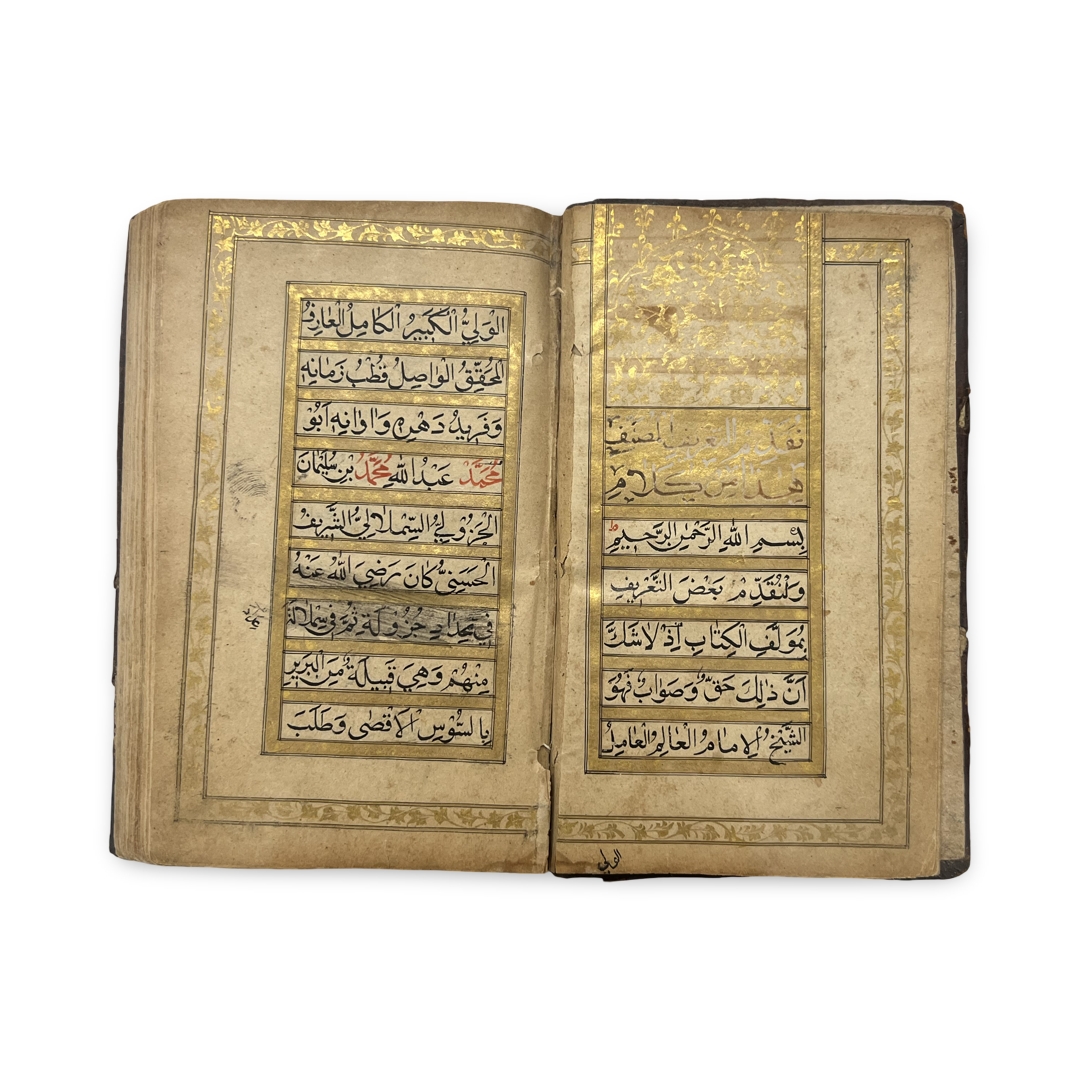 بِسْمِ اللّٰهِ الرَّحْمٰنِ الرَّحِيْمِ
وَلْنُقَدِّمْ بَعْضَ التَّعْرِيفِ
بِمُوَلِّفِ الْكِتَابِ اِذْ لَا شَكَّ
اَنَّ ذٰلِكَ حَقٌّ وَصَوَابٌ فَهُوَ
الشَّيْخُ الْاِمَامُ الْعَالِمُ الْعَامِلُ
الولي
الْوَلِيُّ الْكَبِيْرُ الْكَامِلُ الْعَارِفُ
الْمُحَقِّقُ الْوَاصِلُ قُطْبُ زَمَانِهٖ
وَفَرِيْدُ دَهْرِهٖ وَاَوَانِهٖ اَبُوْ
مُحَمَّدْ عَبْدُ اللّٰهِ مُحَمَّدُ بْنُ سُلَيْمَانَ
الْجَزُوْلِيُّ السِّمْلَالِيُّ الشَّرِيْفُ
الْحَسَنِيُّ كَانَ رَضِيَ اللّٰهُ عَنْهُ
فِيْ جُزُوْلَةَ ثُمَّ فِيْ سِمْلَالَةَ
مِنْهُمْ وَهِيَ قَبِيْلَةٌ مِنَ الْبَرْبَرِ
بِالسُّوْسِ الْاَقْصٰى وَطَلَبَ